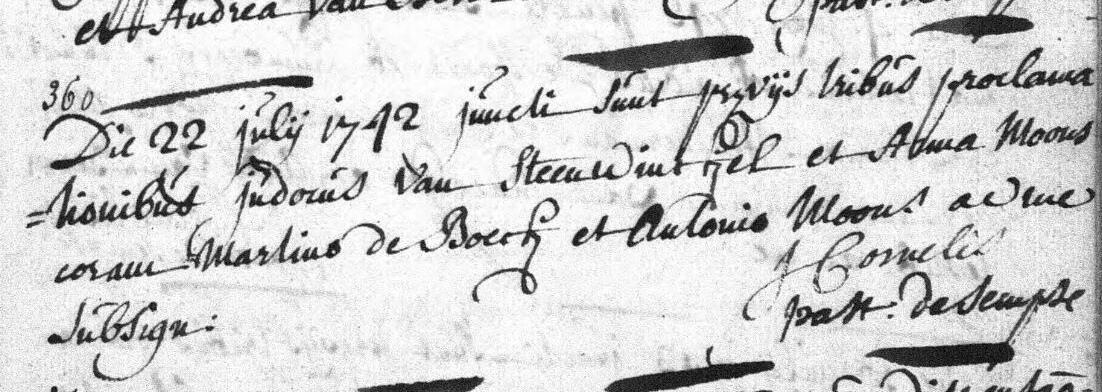 et Andrea Van
past. de
360
Die 22 julij 1742 juncti sunt prævijs tribus proclama
=tionibus judocus Van Steenwinckel et Anna Moons
coram Martino de Boeck et Antonio Moons ac me
Subsign: J Cornelis
past. de Sempse